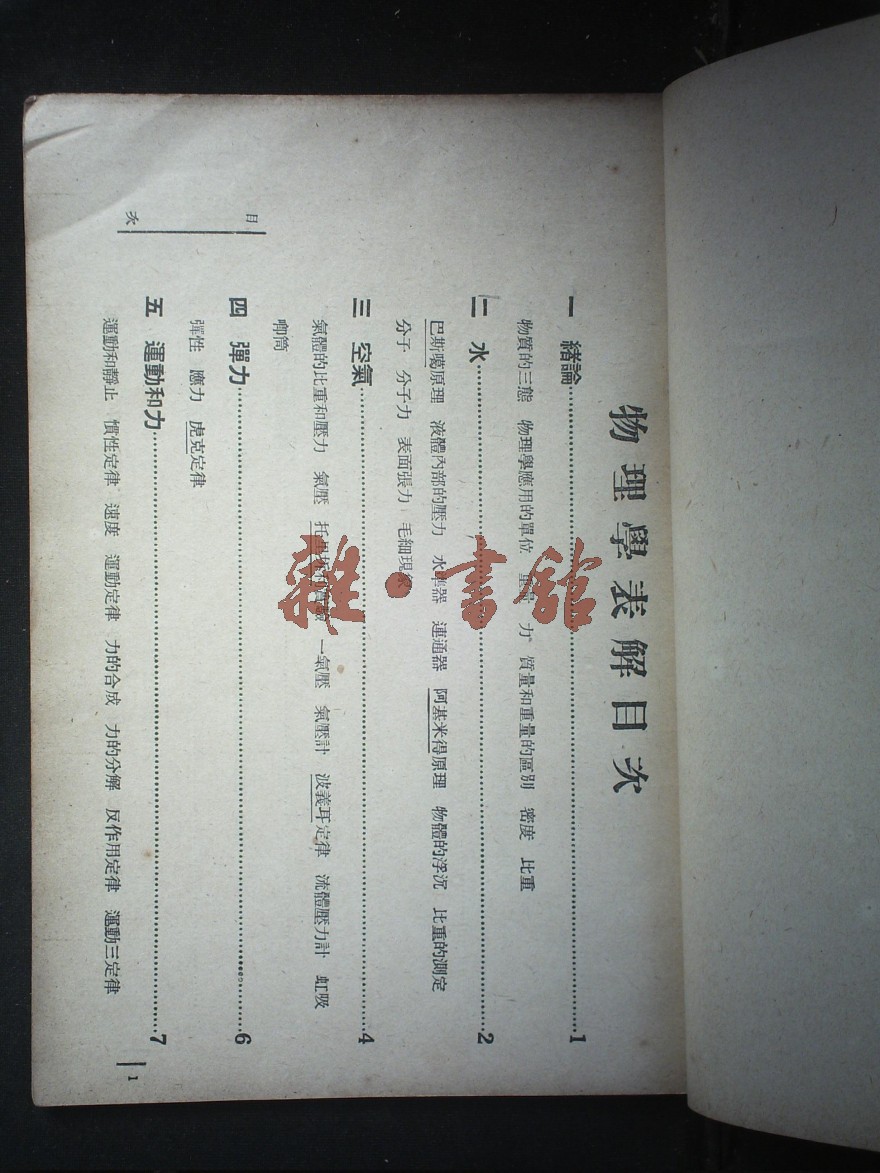 物理學表解目次
一 緒論 1
物質的三態 物理學應用的單位 力 質量和重量的區別 密度 比重
二 水 2
巴斯噶原理 液體內部的壓力 水準器 連通器 阿基米得原理 物體的浮沉 比重的測定
分子 分子力 表面張力 毛細現象
三 空氣 4
氣體的比重和壓力 氣壓 一氣壓 氣壓計 波義耳定律 流體壓力計 虹吸
唧筒
四 彈力 6
彈性 應力 虎克定律
五 運動和力 7
運動和靜止 慣性定律 速度 運動定律 力的合成 力的分解 反作用定律 運動三定律
目次
1
雜·書館